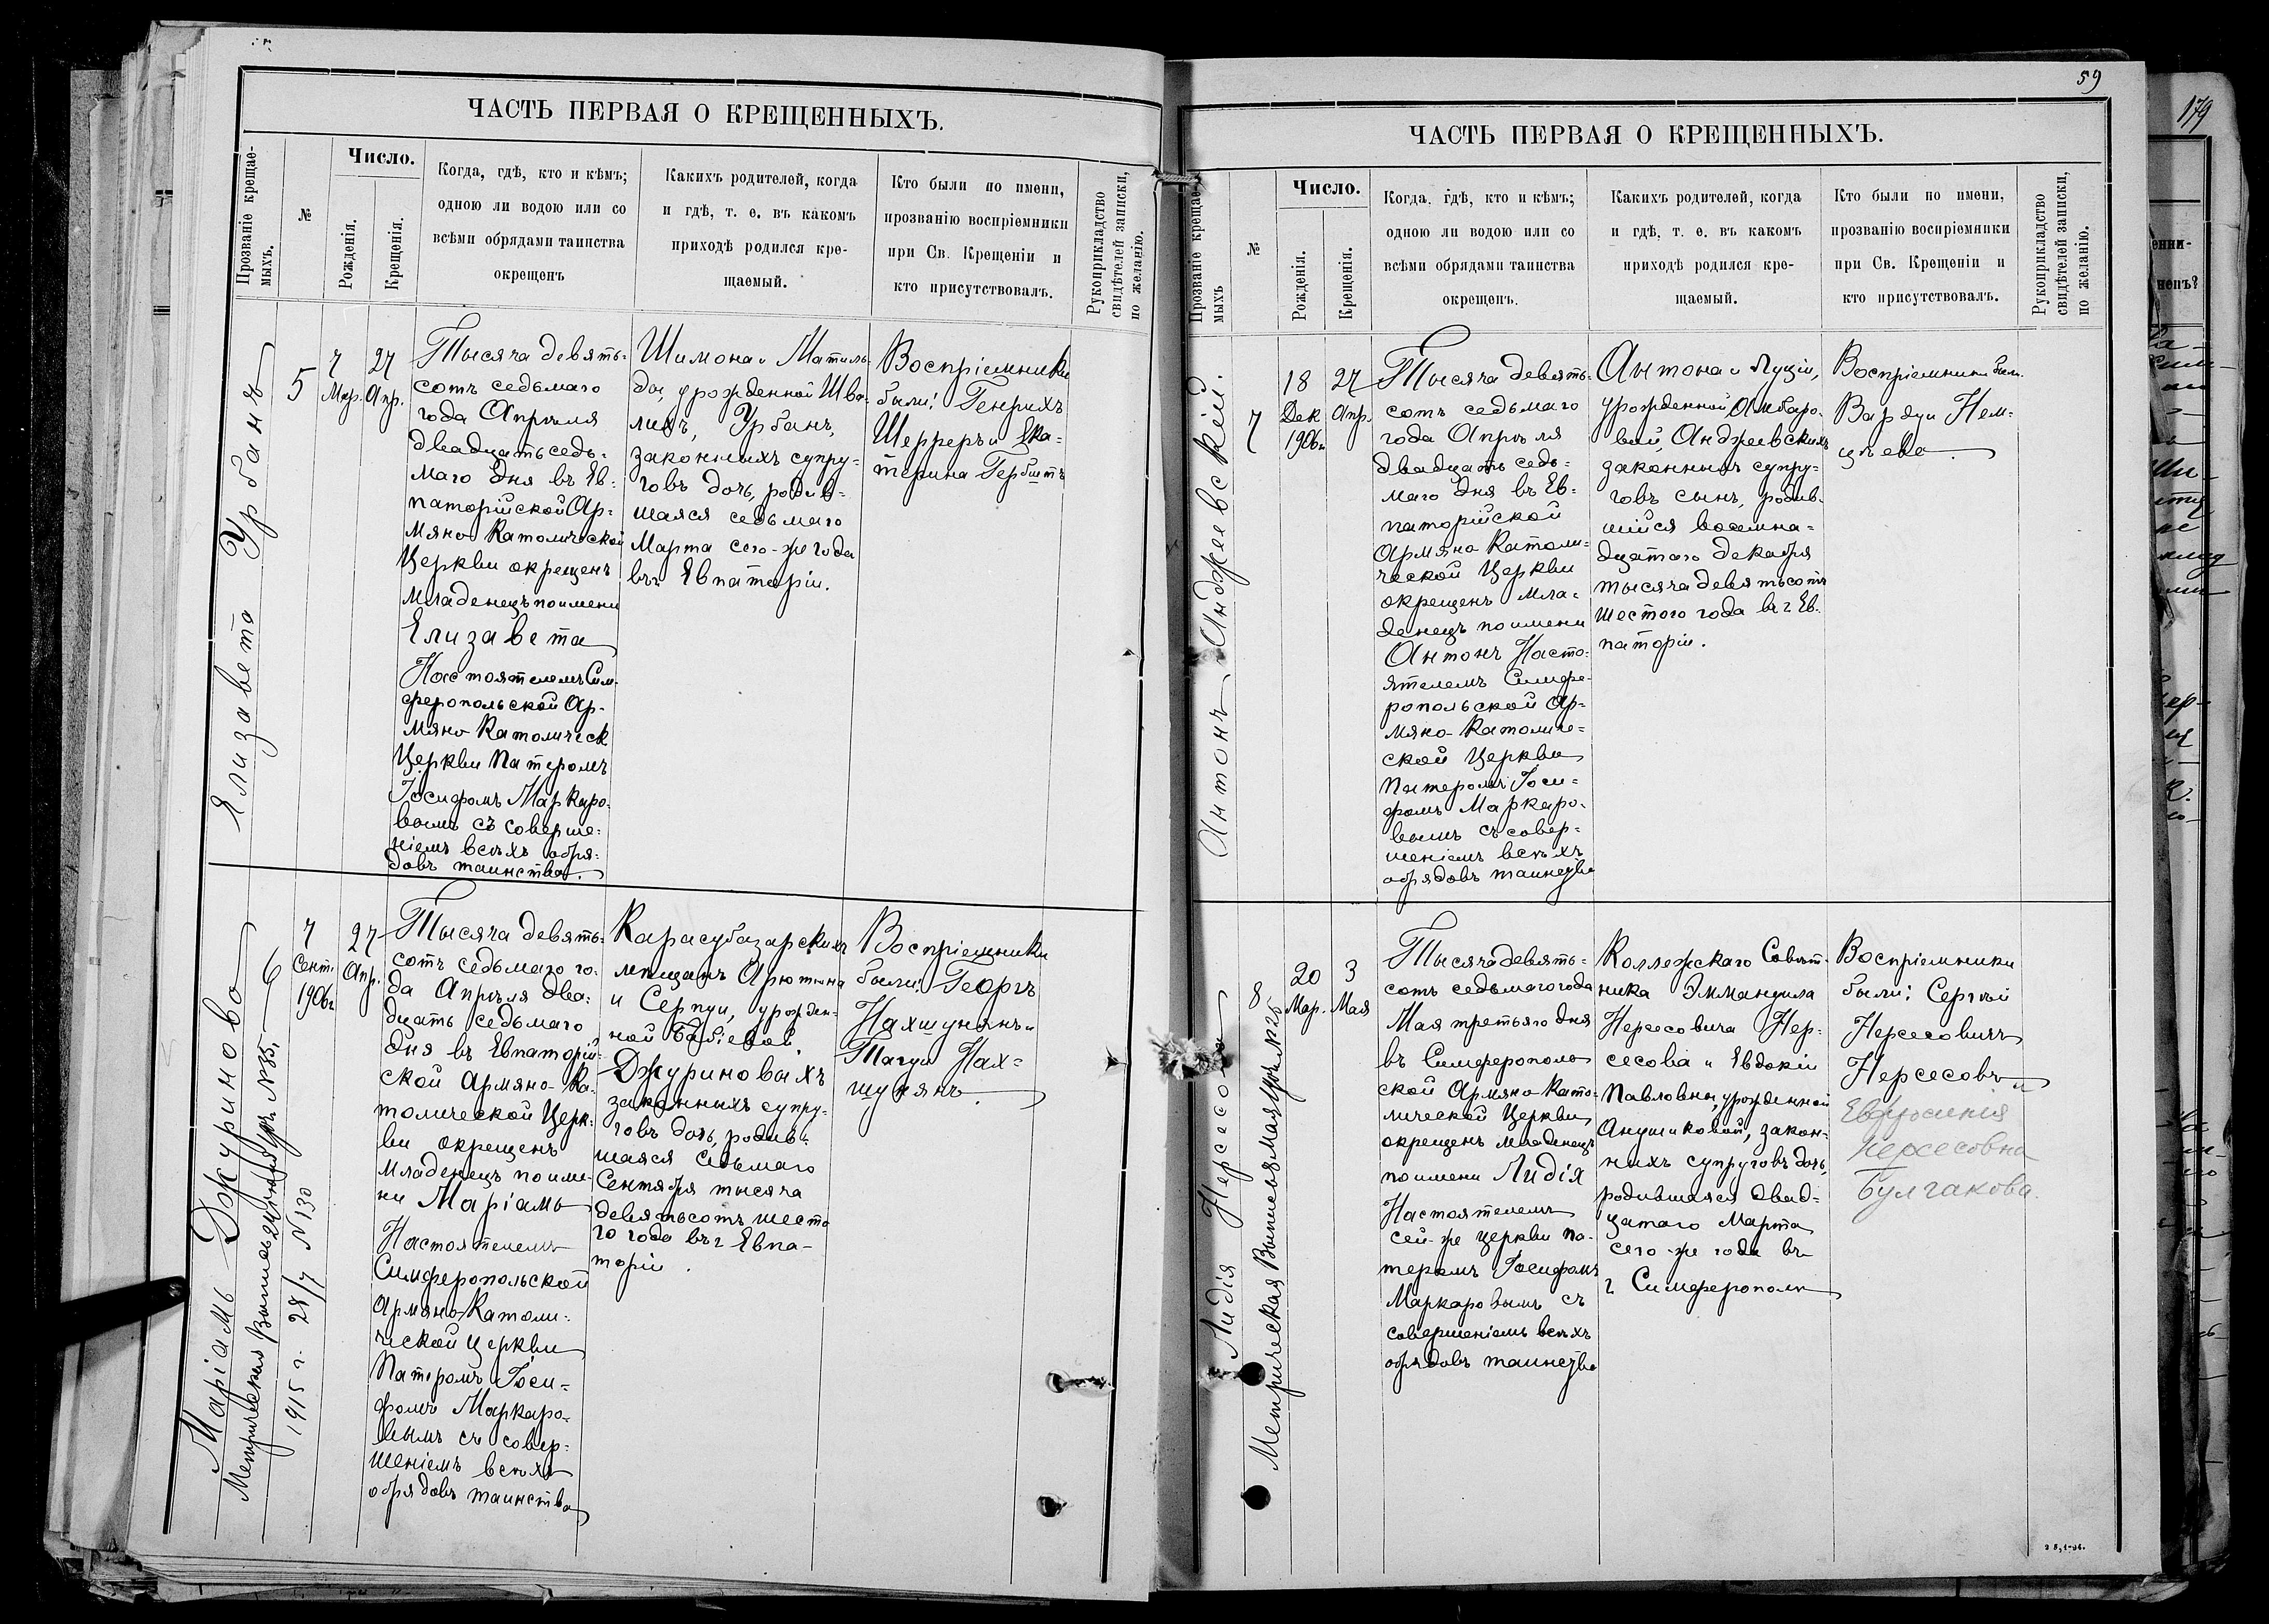 ЧАСТЬ ПЕРВАЯ О КРЕЩЕННЫХЪ.
Прозваніе крещае-
мыхъ.
№
Число.
Рожденія.
Крещенія.
Когда, гдѣ, кто и кѣмъ;
одною ли водою или со
всѣми обрядами таинства
окрещенъ
Какихъ родителей, когда
и гдѣ, т. е. въ какомъ
приходѣ родился кре-
щаемый.
Кто были по имени,
прозванію воспріемники
при Св. Крещеніи и
кто присутствовалъ.
Рукоприкладство
свидѣтелей записки,
по желанію.
Елизавета Урбанъ
5
7
Мар.
27
Апр.
Тысяча девять-
сотъ седьмаго
года Апрѣля
двадцать седь-
маго дня въ Ев-
паторійской Ар-
мяно Католической
Церкви окрещенъ
младенецъ по имени
Елизавета
Настоятелемъ Сим-
феропольской Ар-
мяно Католическ
Церкви Патеромъ
Іосифомъ Маркаро-
вымъ съ соверше-
ніемъ всѣхъ обря-
довъ таинства.
Шимона и Матиль-
ды, урожденной Шва-
лихъ, Урбанъ,
законныхъ супру-
говъ дочь, родив-
шаяся седьмаго
Марта сего-же года
въ г Евпаторіи.
Воспріемники
были: Генрихъ
Шерреръ и Ека-
терина Гербштъ
Маріамъ Джуринова
Метрическая Выпись 24 іюня № 35.
1915 г. 28/7 № 130
6
7
Сент.
1906 г
27
Апр.
Тысяча девять-
сотъ седьмаго го-
да Апрѣля два-
дцать седьмаго
дня въ Евпаторій-
ской Армяно-Ка-
толической Церк-
ви окрещенъ
младенецъ по име-
ни Маріамъ
Настоятелемъ
Симферопольской
Армяно-Католи-
ческой церкви
Патеромъ Іоси-
фомъ Маркаро-
вымъ съ совер-
шеніемъ всѣхъ
обрядовъ таинства
Карасубазарскихъ
мѣщанъ Арютюна
и Серпуи, урожден-
ной Бабіевой,
Джуриновыхъ
законныхъ супру-
говъ дочь, родив-
шаяся седьмаго
Сентября тысяча
девятьсотъ шесто
го года въ г Евпа-
торіи.
Воспріемники
были: Георгъ
Нахшунянъ и
Тагуи Нах-
шунянъ.
59
ЧАСТЬ ПЕРВАЯ О КРЕЩЕННЫХЪ.
Прозваніе крещае-
мыхъ
№
Число.
Рожденія.
Крещенія.
Когда, гдѣ, кто и кѣмъ;
одною ли водою или со
всѣми обрядами таинства
окрещенъ.
Какихъ родителей, когда
и гдѣ, т. е. въ какомъ
приходѣ родился кре-
щаемый.
Кто были по имени,
прозванію воспріемники
при Св. Крещеніи и
кто присутствовалъ.
Рукоприкладство
свидѣтелей записки,
по желанію.
Антонъ Анджеевскій.
7
18
Дек
1906 г
27
Апр.
Тысяча девять-
сотъ седьмаго
года Апрѣля
двадцать седь-
маго дня въ Ев-
паторійской
Армяно Католи-
ческой Церкви
окрещенъ мла-
денецъ по имени
Антонъ Насто-
ятелемъ Симфе-
ропольской Ар-
мяно-Католиче-
ской Церкви
Патеромъ Іоси-
фомъ Маркаро-
вымъ съ совер-
шеніемъ всѣхъ
обрядовъ таинства
Антона и Луціи,
урожденной Амбаро-
вой, Анджеевскихъ
законныхъ супру-
говъ сынъ, родив-
шійся восемна-
дцатаго Декабря
тысяча девятьсотъ
шестого года въ г Ев-
паторіи.
Воспріемники были
Вардуи Нем-
цѣева.
Лидія Нерсесова
Метрическая Выпись Мая № 26
8
20
Мар.
3
Мая
Тысяча девять-
сотъ седьмого года
Мая третьяго дня
въ Симферополь
ской Армяно Като-
лической Церкви,
окрещенъ младенецъ
по имени Лидія
Настоятелемъ
сей-же церкви па-
теромъ Іосифомъ
Маркаровымъ съ
совершеніемъ всѣхъ
обрядовъ таинства
Коллежскаго Совѣт-
ника Эммануила
Нерсесовича Нер-
сесова и Евдокіи
Павловны, урожденной
Анушиковой, закон-
ныхъ супруговъ дочь,
родившаяся двад-
цатаго Марта
сего-же года въ
г Симферополѣ
Воспріемники
были: Сергѣй
Нерсесовичъ
Нерсесовъ и
Евфросинія
Нерсесовна
Булгакова.
179